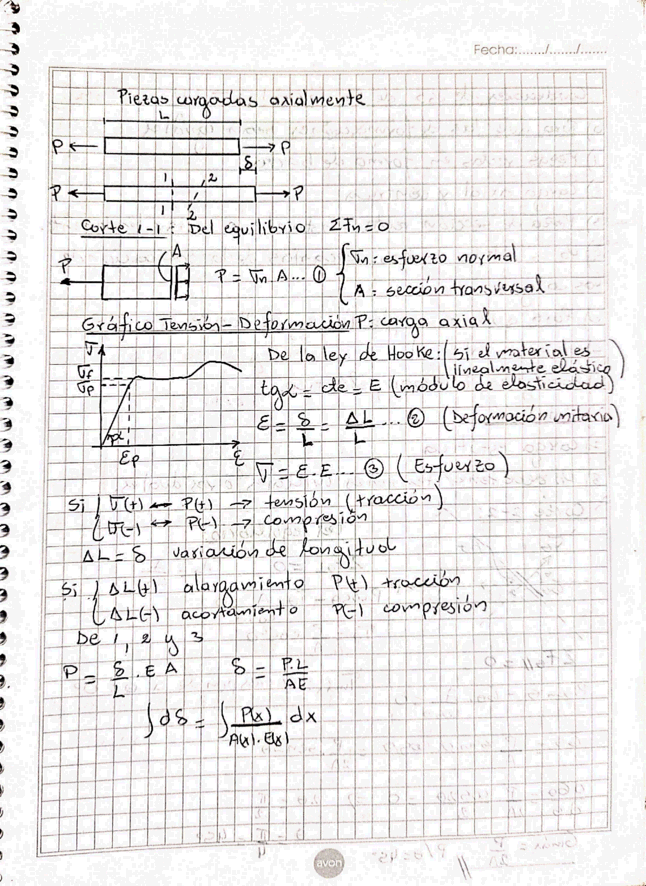 Fecha:......../......./.......
Piezas cargadas axialmente
L
P ← → P
δ
P ← 1 2 → P
1 2
Corte 1-1: Del equilibrio ΣFn=0
P A P = σn.A... ① { σn: esfuerzo normal
A: sección transversal
Gráfico Tensión-Deformación P: carga axial
σ De la ley de Hooke: (si el material es
linealmente elástico)
σf
σp tgα = cte = E (módulo de elasticidad)
α ε = δ/L = ΔL/L ... ② (Deformación unitaria)
εp ε
σ = E.ε... ③ (Esfuerzo)
Si { σ(+) ↔ P(+) → tensión (tracción)
σ(-) ↔ P(-) → compresión
ΔL = δ variación de longitud
Si { ΔL(+) alargamiento P(+) tracción
ΔL(-) acortamiento P(-) compresión
De 1, 2 y 3
P = δ/L . E A δ = P.L/AE
∫dδ = ∫ P(x)/A(x).E(x) dx
avon